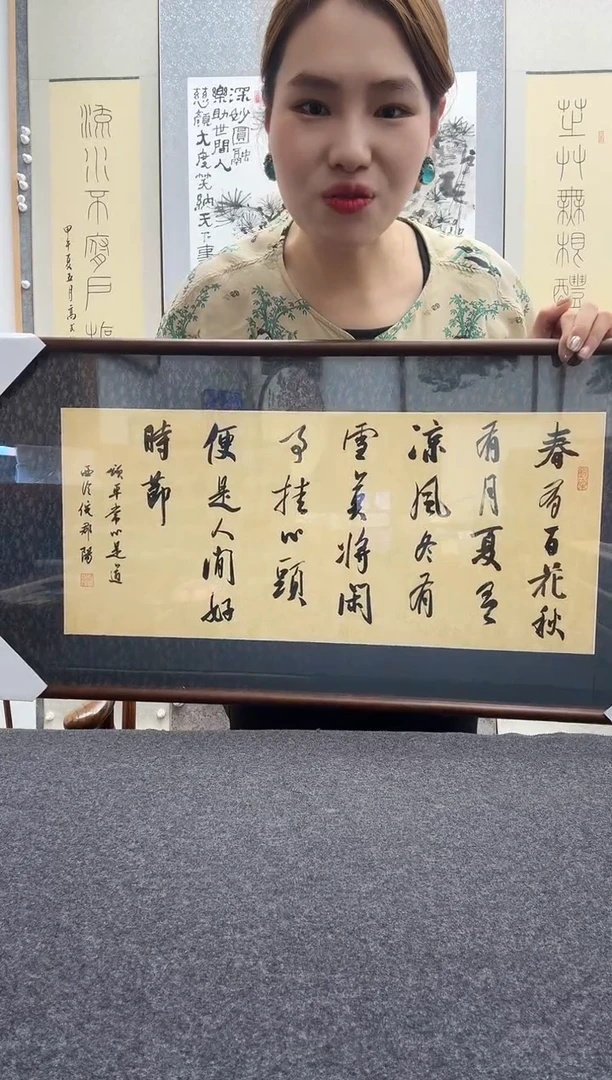 芝艸無根醴
深妙圓融
樂助世間人
慈顏大度笑納天下
流水不腐戶
甲午夏五月
春有百花秋
有月夏有
凉風冬有
雪莫將閑
事挂心頭
便是人间好
時節
頌平常心是道
西泠侯郡陽